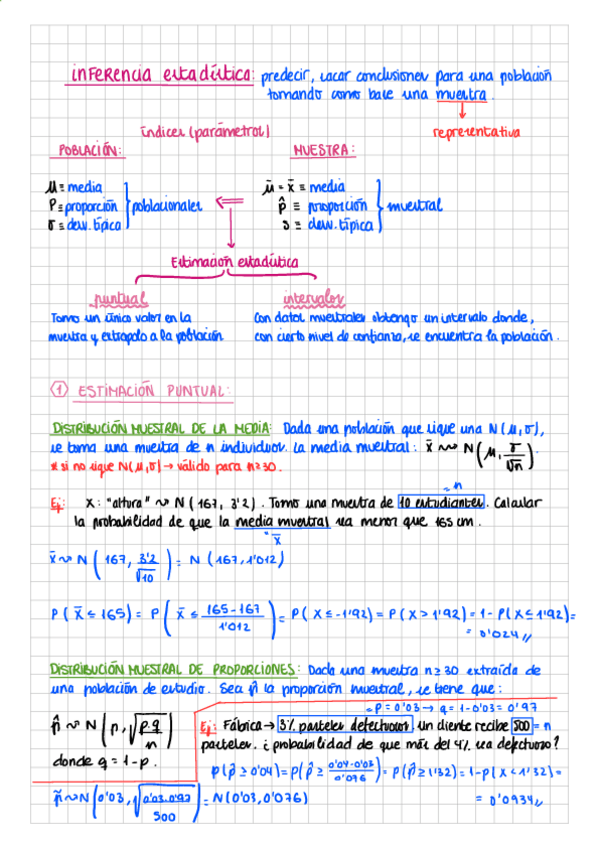 inFerencia estadística: predecir, sacar conclusiones para una población
tomando como base una muestra.
representativa
índices (parámetros)
POBLACIÓN:
MUESTRA:
μ ≡ media
P ≡ proporción
σ ≡ desv. típica
poblacionales
μ̄ = x̄ ≡ media
p̂ ≡ proporción
s ≡ desv. típica
muestral
Estimación estadística
puntual
Tomo un único valor en la
muestra y extrapolo a la población
intervalos
Con datos muestrales obtengo un intervalo donde,
con cierto nivel de confianza, se encuentra la población.
① ESTIMACIÓN PUNTUAL:
DISTRIBUCIÓN MUESTRAL DE LA MEDIA: Dada una población que sigue una N(μ,σ),
se toma una muestra de n individuos. La media muestral: x̄ ~> N(μ, σ/√n).
* si no sigue N(μ,σ) → válido para n≥30.
n
Ej: X: "altura" ~> N(167, 3'2). Tomo una muestra de 10 estudiantes. Calcular
la probabilidad de que la media muestral sea menor que 165 cm.
x̄
x̄ ~> N(167, 3'2/√10) = N(167, 1'012)
P(X̄ ≤ 165) = P(X̄ ≤ 165-167/1'012) = P(X ≤ -1'92) = P(X > 1'92) = 1 - P(X ≤ 1'92) =
= 0'024
DISTRIBUCIÓN MUESTRAL DE PROPORCIONES: Dada una muestra n≥30 extraída de
una población de estudio. Sea p̂ la proporción muestral, se tiene que:
p = 0'03 → q = 1-0'03 = 0'97
p̂ ~> N(p, √(p·q/n))
donde q = 1-p.
Ej: Fábrica → 3% pasteles defectuosos. un cliente recibe 500 = n
pasteles. ¿probabilidad de que más del 4% sea defectuoso?
P(p̂ ≥ 0'04) = P(p̂ ≥ 0'04-0'03/0'076) = P(p̂ ≥ 1'32) = 1-P(X < 1'32) =
p̂ ~> N(0'03, √(0'03·0'97/500)) = N(0'03, 0'076)
= 0'0934